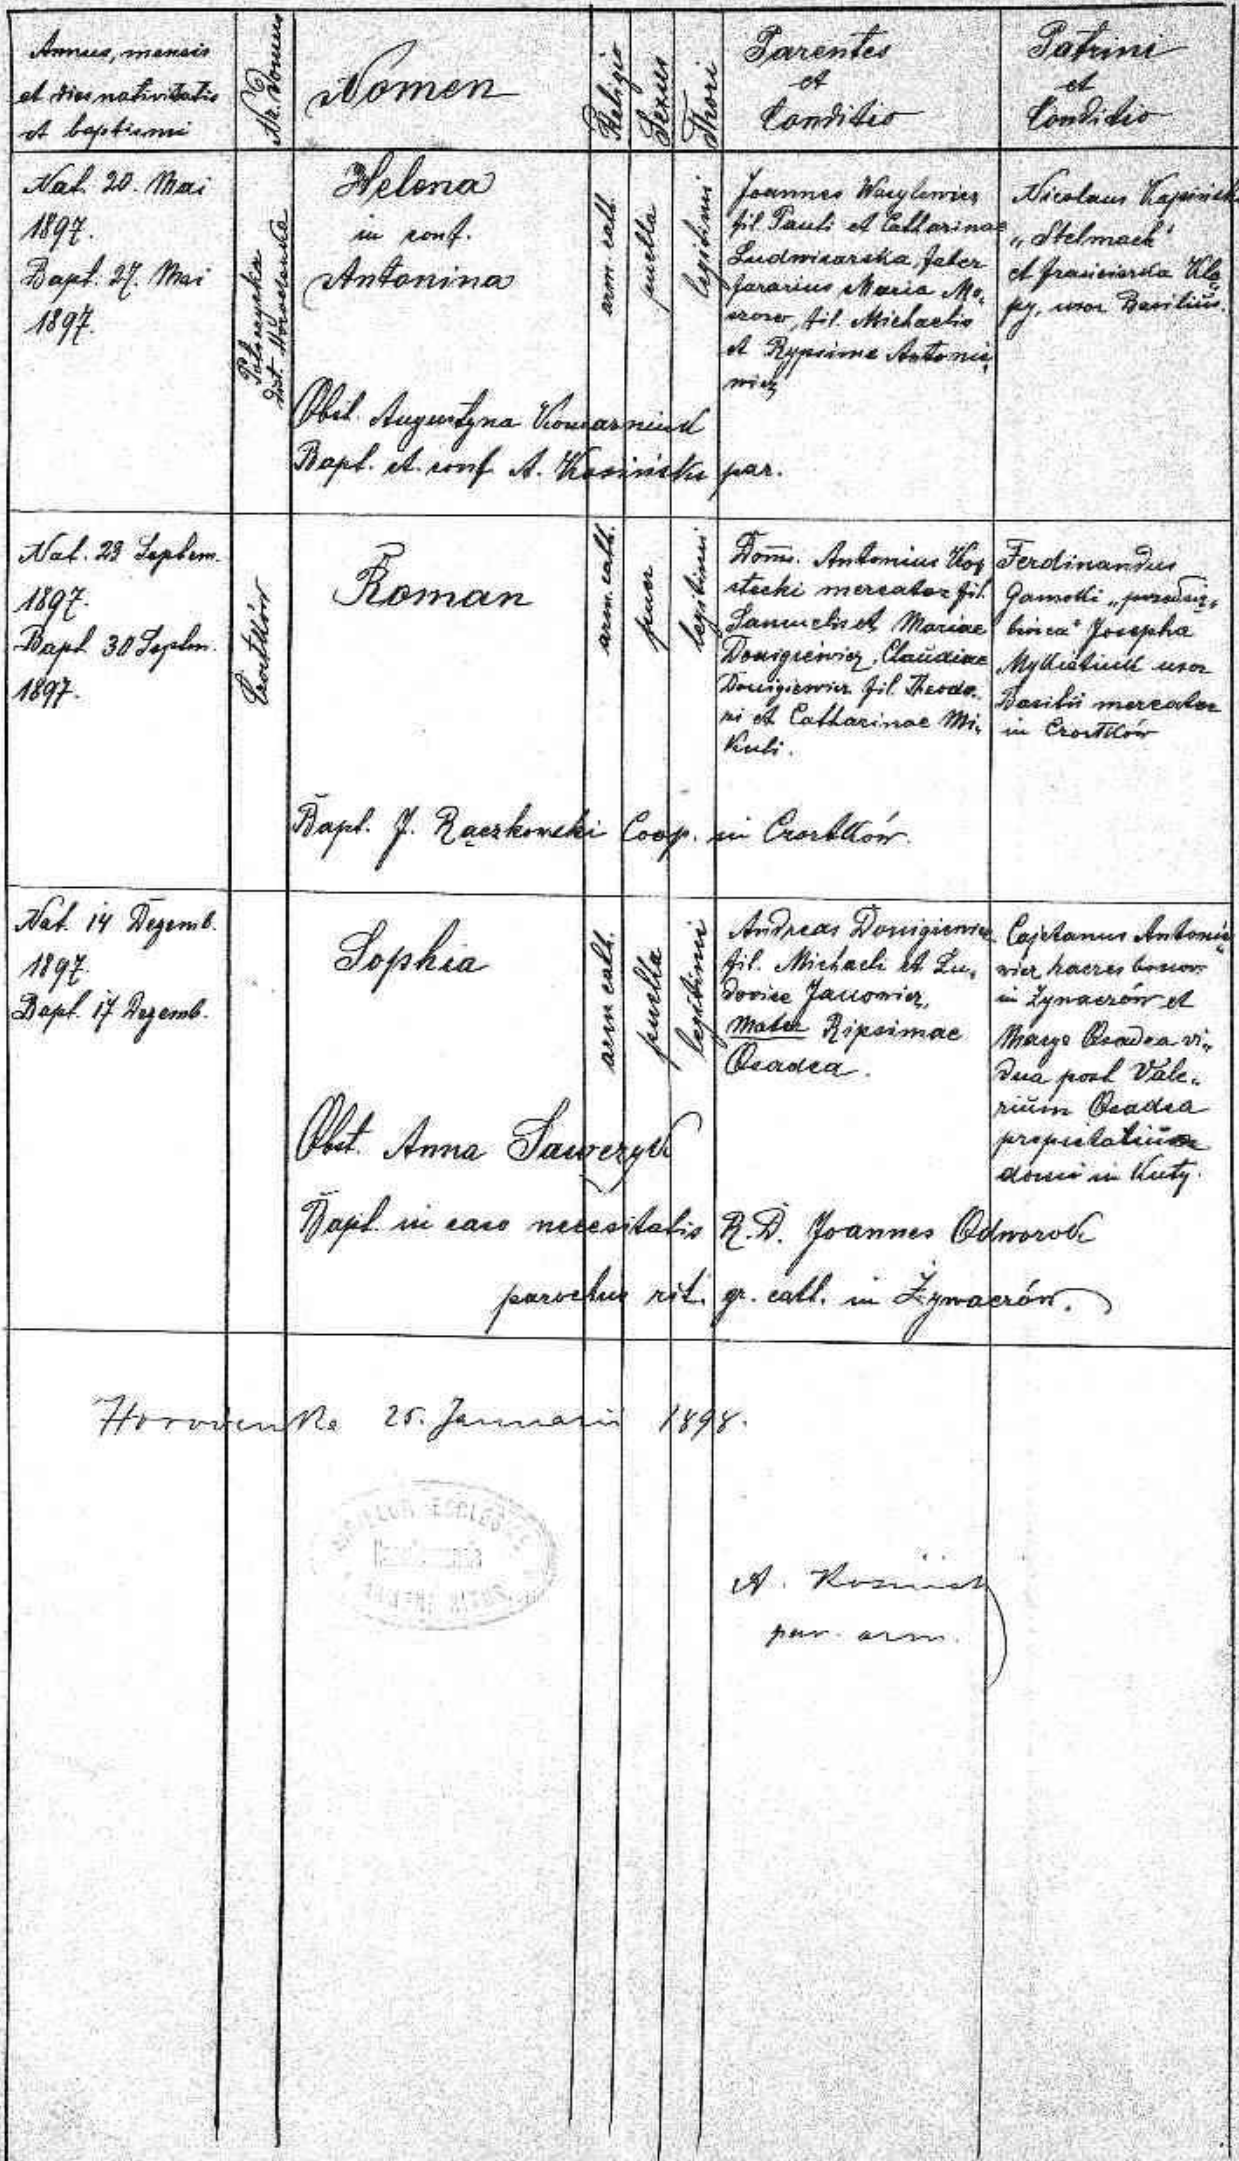 Annus, mensis
et dies nativitatis
et baptismi
Nr. Domus
Nomen
Religio
Sexus
Thori
Parentes
et
Conditio
Patrini
et
Conditio
Nat. 20. Mai
1897.
Bapt. 27. Mai
1897.
Helena
in conf.
Antonina
arm. cath.
puella
legitimi
Joannes Wasylewicz
fil. Pauli et Catharinae
Ludwisarska, faber
ferrarius Maria Mo„
fil. Michaelis
et Rypsime Antonie„
wicz
Nicolaus
„Stelmach"
et
uxor Basilius.
Obst. Augustyna
Bapt. et conf A. Kosiński par.
Nat. 29 Septem.
1897.
Bapt 30 Septm.
1897.
Czortków
Roman
arm. cath.
puer
legitimi
Dom̄. Antonius
mercator fil.
Samuelis et Mariae
Donigiewicz, Claudiae
Donigiewicz fil. Theodo„
ri et Catharinae Mi„
kuli.
Ferdinandus
Josepha
uxor
Basilii mercator
in Czortków
Bapt. J. Rączkowski Coop. in Czortków.
Nat. 14 Dezemb.
1897.
Bapt. 17 Dezemb.
Sophia
arm cath.
puella
legitimi
Andreas Donigiewicz
fil. Michaeli et Lu„
dovice Janowicz,
Mater Ripsimae
Osadca.
Cajetanus Antonie„
wicz haeres bonor
in Zywaczów et
Marya Osadca vi„
dua post Vale„
rium Osadca
domi in Kuty.
Obst. Anna Sawczyk
Bapt. in caso necesitatis R. D. Joannes Odworok
parochus rit. gr. cath. in Żywaczów.
Horodenka 25. Januarii 1898.
A. Kosiński
par. arm.